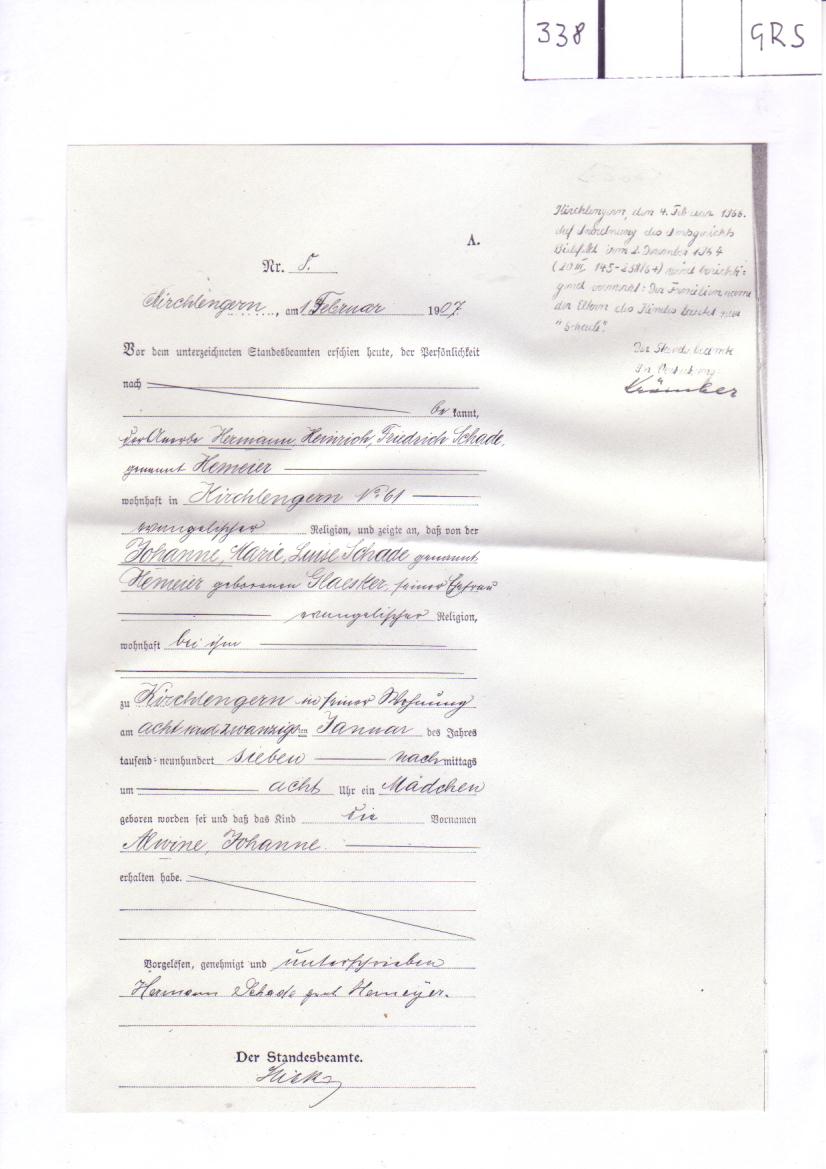 338
GRS
Kirchlengern, den 4. Februar 1966.
Auf Anordnung des Amtsgerichts
Bielefeld vom 2. Dezember 1964
wird berichti=
gend vermerkt: Der Familienname
der Eltern des Kindes lautet
Der Standesbeamte
In Vertretung
A.
Nr. 5.
Kirchlengern, am 1 Februar 1907.
Vor dem unterzeichneten Standesbeamten erschien heute, der Persönlichkeit
nach
be kannt,
der Anerbe Hermann, Heinrich, Friedrich Schade,
genannt Hemeier
wohnhaft in Kirchlengern No 61
evangelischer Religion, und zeigte an, daß von der
Johanne, Marie, Luise Schade genannt
Hemeier geborenen Glaesker, seiner Ehefrau
evangelischer Religion,
wohnhaft bei ihm
zu Kirchlengern in seiner Wohnung
am acht und zwanzigsten Januar des Jahres
tausend=neunhundert sieben nachmittags
um acht Uhr ein Mädchen
geboren worden sei und daß das Kind die Vornamen
Alwine, Johanne
erhalten habe.
Vorgelesen, genehmigt und unterschrieben
Hermann Schade gnt Hemeyer.
Der Standesbeamte.